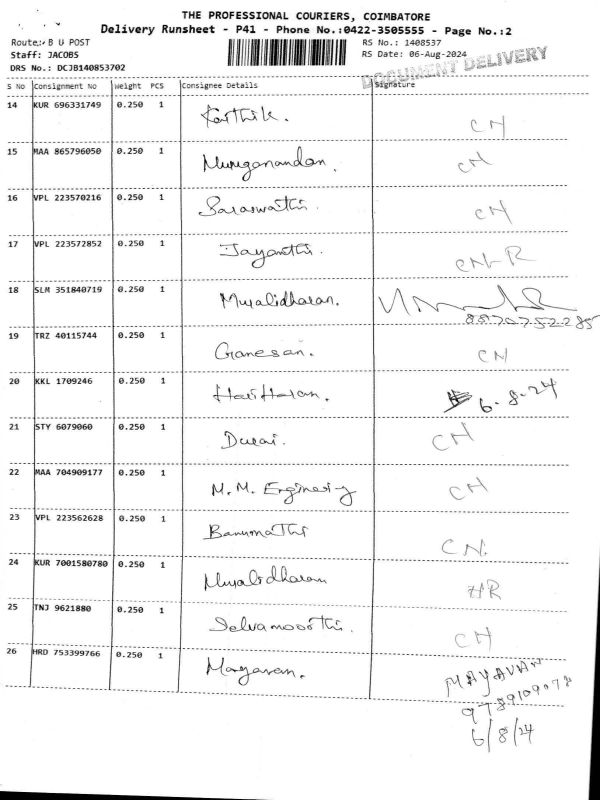 THE PROFESSIONAL COURIERS, COIMBATORE
Delivery Runsheet - P41 - Phone No.:0422-3505555 - Page No.:2
Route: B U POST
RS No.: 1408537
Staff: JACOBS
RS Date: 06-Aug-2024
DRS No.: DCJB140853702
DOCUMENT DELIVERY
S No Consignment No Weight PCS Consignee Details Signature
14 KUR 696331749 0.250 1 Karthik. CN
15 MAA 865796050 0.250 1 Muruganandan. CN
16 VPL 223570216 0.250 1 Saraswathi. CN
17 VPL 223572852 0.250 1 Jayanthi. CN-R
18 SLM 351840719 0.250 1 Muralidharan.
19 TRZ 40115744 0.250 1 Ganesan. CN
20 KKL 1709246 0.250 1 HariHaran. 6-8-24
21 STY 6079060 0.250 1 Durai. CN
22 MAA 704909177 0.250 1 M.M. CN
23 VPL 223562628 0.250 1 BanumaThi CN.
24 KUR 7001580780 0.250 1 Muralidharan HR
25 TNJ 9621880 0.250 1 Selvamoorthi. CN
26 HRD 753399766 0.250 1 Mayavan. MAYAVAN
6/8/24